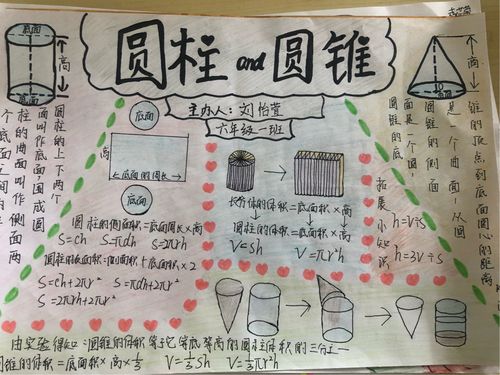 圆柱 and 圆锥
主办人：刘怡萱
六年级一班
底面
高
底面
圆柱的上下两个
面叫作底面，围成圆
柱的曲面叫作侧面
底面
高
底面的周长
底面
圆柱的侧面积=底面周长×高
S=ch S=πdh S=2πrh
圆柱的表面积=侧面积+底面积×2
S=ch+2πr² S=πdh+2πr²
S=2πrh+2πr²
长方体的体积=底面积×高
圆柱的体积=底面积×高
V=Sh V=πr²h
拓展小知识
h=V÷S
h=3V÷S
高
底面
圆锥的底
面是一个圆，
圆锥的侧面
是一个曲面，从圆
锥的顶点到底面圆心的距离
由实验得知：圆锥的体积等于它等底等高的圆柱体积的三分之一
圆锥的体积=底面积×高×1/3 V=1/3Sh V=1/3πr²h